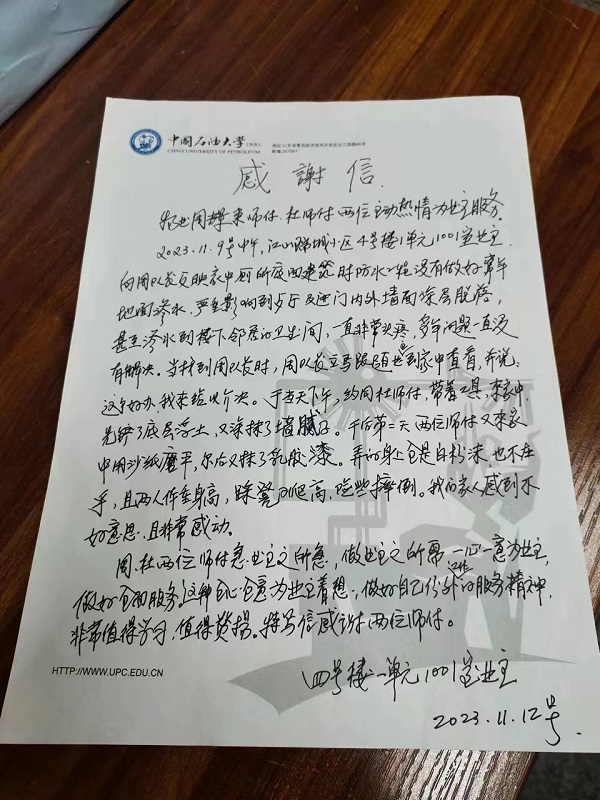 中国石油大学(华东)
CHINA UNIVERSITY OF PETROLEUM
感謝信
师付.杜师付两位主动热情为业主服务。
2023.11.9号中午,江山瑞城小区4号楼1单元1001室业主
向周队长反映家中厕所底面建筑时防水工程没有做好常年
地面渗水,严重影响到歺厅及进门内外墙面涂层脱落,
甚至渗水到楼下邻居的卫生间,一直非常头疼,多年问题一直没
有解决。当找到周队长时,周队长立马跟随业主到家中查看,并说:
这事好办,我来给解决。于当天下午,约同杜师付,带着工具,来家中,
先铲了底层浮土,又涂抹了墙腻子。于后第二天两位师付又来家
中用沙纸磨平,尔后又抹了乳胶漆。弄的身上全是白粉沫也不在
乎,且两人体重身高,踩凳爬高,险些摔倒。我的家人感到不
好意思,且非常感动。
周.杜两位师付急业主之所急,做业主之所需,一心一意为业主,
做好全面服务。这种全心全意为业主着想,做好自己份外的工作服务精神,
非常值得学习,值得赞揚。特写信感谢两位师付。
四号楼一单元1001室业主
2023.11.12号.
HTTP://WWW.UPC.EDU.CN